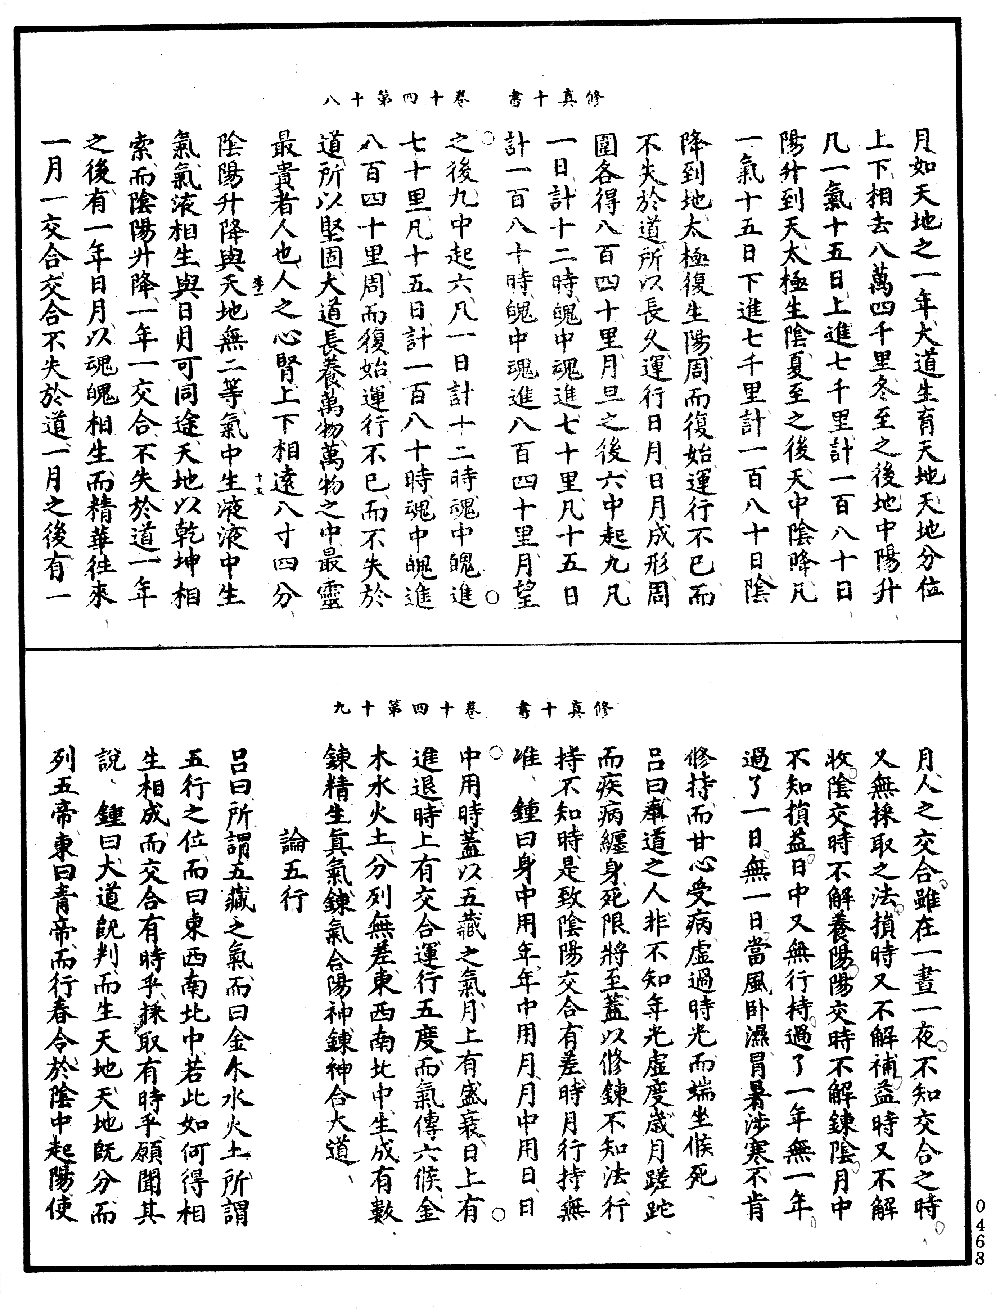 修真十書　卷十四第十八
月如天地之一年大道生育天地天地分位
上下相去八萬四千里冬至之後地中陽升
凡一氣十五日上進七千里計一百八十日
陽升到天太極生陰夏至之後天中陰降凡
一氣十五日下進七千里計一百八十日陰
降到地太極復生陽周而復始運行不已而
不失於道所以長久運行日月日月成形周
圍各得八百四十里月旦之後六中起九凡
一日計十二時魄中魂進七十里凡十五日
計一百八十時魄中魂進八百四十里月望
之後九中起六凡一日計十二時魂中魄進
七十里凡十五日計一百八十時魂中魄進
八百四十里周而復始運行不已而不失於
道所以堅固大道長養萬物萬物之中最靈
最貴者人也人之心腎上下相遠八寸四分
陰陽升降與天地無二等氣中生液液中生
氣氣液相生與日月可同途天地以乾坤相
索而陰陽升降一年一交合不失於道一年
之後有一年日月以魂魄相生而精華往來
一月一交合交合不失於道一月之後有一
修真十書　卷十四第十九
月人之交合雖在一晝一夜不知交合之時
又無採取之法損時又不解補益時又不解
收陰交時不解養陽陽交時不解鍊陰月中
不知損益日中又無行持過了一年無一年
過了一日無一日當風卧濕冒暑涉寒不肯
修持而甘心受病虛過時光而端坐候死
呂曰奉道之人非不知年光虛度歲月蹉跎
而疾病纏身死限將至蓋以修鍊不知法行
持不知時是致陰陽交合有差時月行持無
准　鍾曰身中用年年中用月月中用日日
中用時蓋以五藏之氣月上有盛衰日上有
進退時上有交合運行五度而氣傳六候金
木水火土分列無差東西南北中生成有數
鍊精生真氣鍊氣合陽神鍊神合大道
論五行
呂曰所謂五藏之氣而曰金木水火土所謂
五行之位而曰東西南北中若此如何得相
生相成而交合有時乎採取有時乎願聞其
說　鍾曰大道既判而生天地天地既分而
列五帝東曰青帝而行春令於陰中起陽使
0468